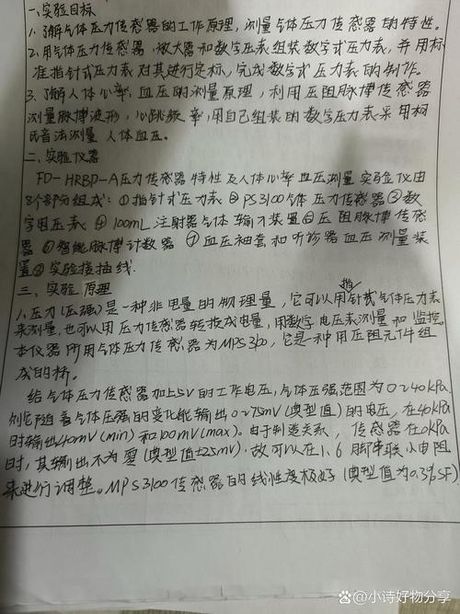 一、实验目标
1、了解气体压力传感器的工作原理,测量气体压力传感器的特性。
2、用气体压力传感器、放大器和数字电压表组装数字式压力表,并用标
准指针式压力表对其进行定标,完成数字式压力表的制作。
3、了解人体心率、血压的测量原理,利用压阻脉搏传感器
测量脉搏波形、心跳频率,用自己组装的数字压力表采用柯
氏音法测量人体血压。
二、实验仪器
FD-HRBP-A压力传感器特性及人体心率血压测量实验仪由
8个部分组成:①指针式压力表②PS3100气体压力传感器③数
字电压表④100mL注射器气体输入装置⑤压阻脉搏传感
器⑥智能脉搏计数器⑦血压袖套和听诊器血压测量装
置⑧实验接插线.
三、实验原理
1、压力(压强)是一种非电量的物理量,它可以用指针式气体压力表
来测量,也可以用压力传感器转换成电量,用数字电压表测量和监控
本仪器所用气体压力传感器为MPS3100,它是一种用压阻元件组
成的桥.
给气体压力传感器加上5V的工作电压,气体压强范围为0~40kPa,
则它随着气体压强的变化能输出0~75mV(典型值)的电压,在40kPa
时输出40mV(min)和100mV(max)。由于制造关系,传感器在0kPa
时,其输出不为零(典型值±25mV).故可以在1、6脚串联小电阻
来进行调整。MPS3100传感器的线性度极好(典型值为0.3%SF)
@小诗好物分享